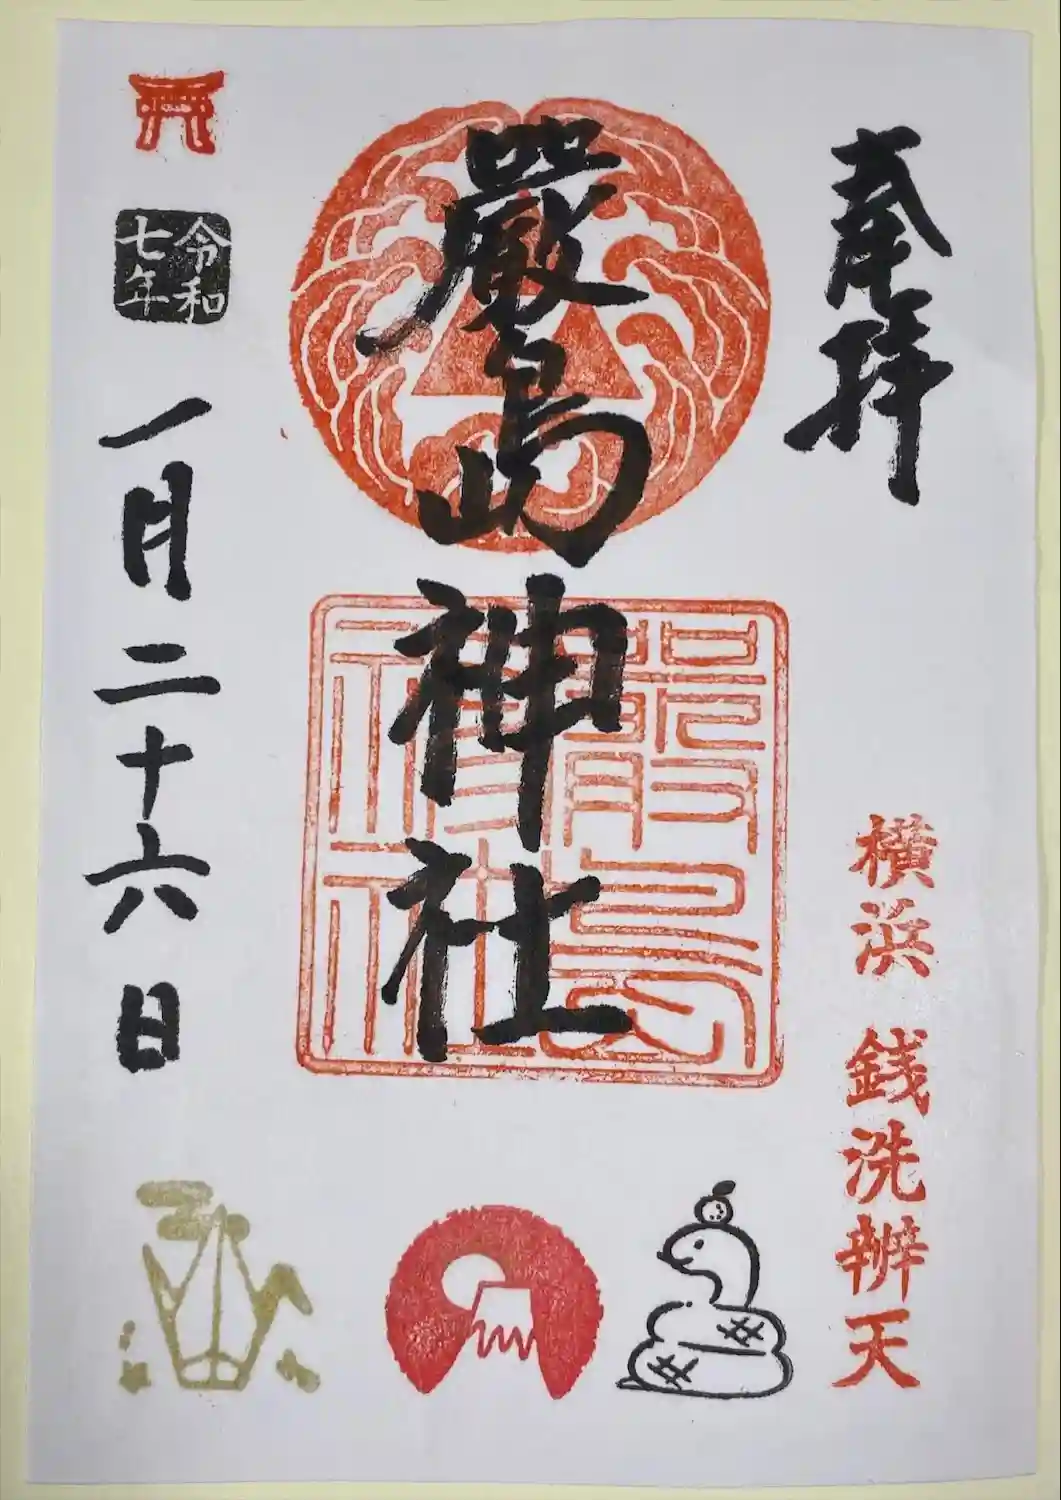 奉拝
横浜 銭洗辨天
嚴島神社
嚴島
神社
令和
七年
一月二十六日